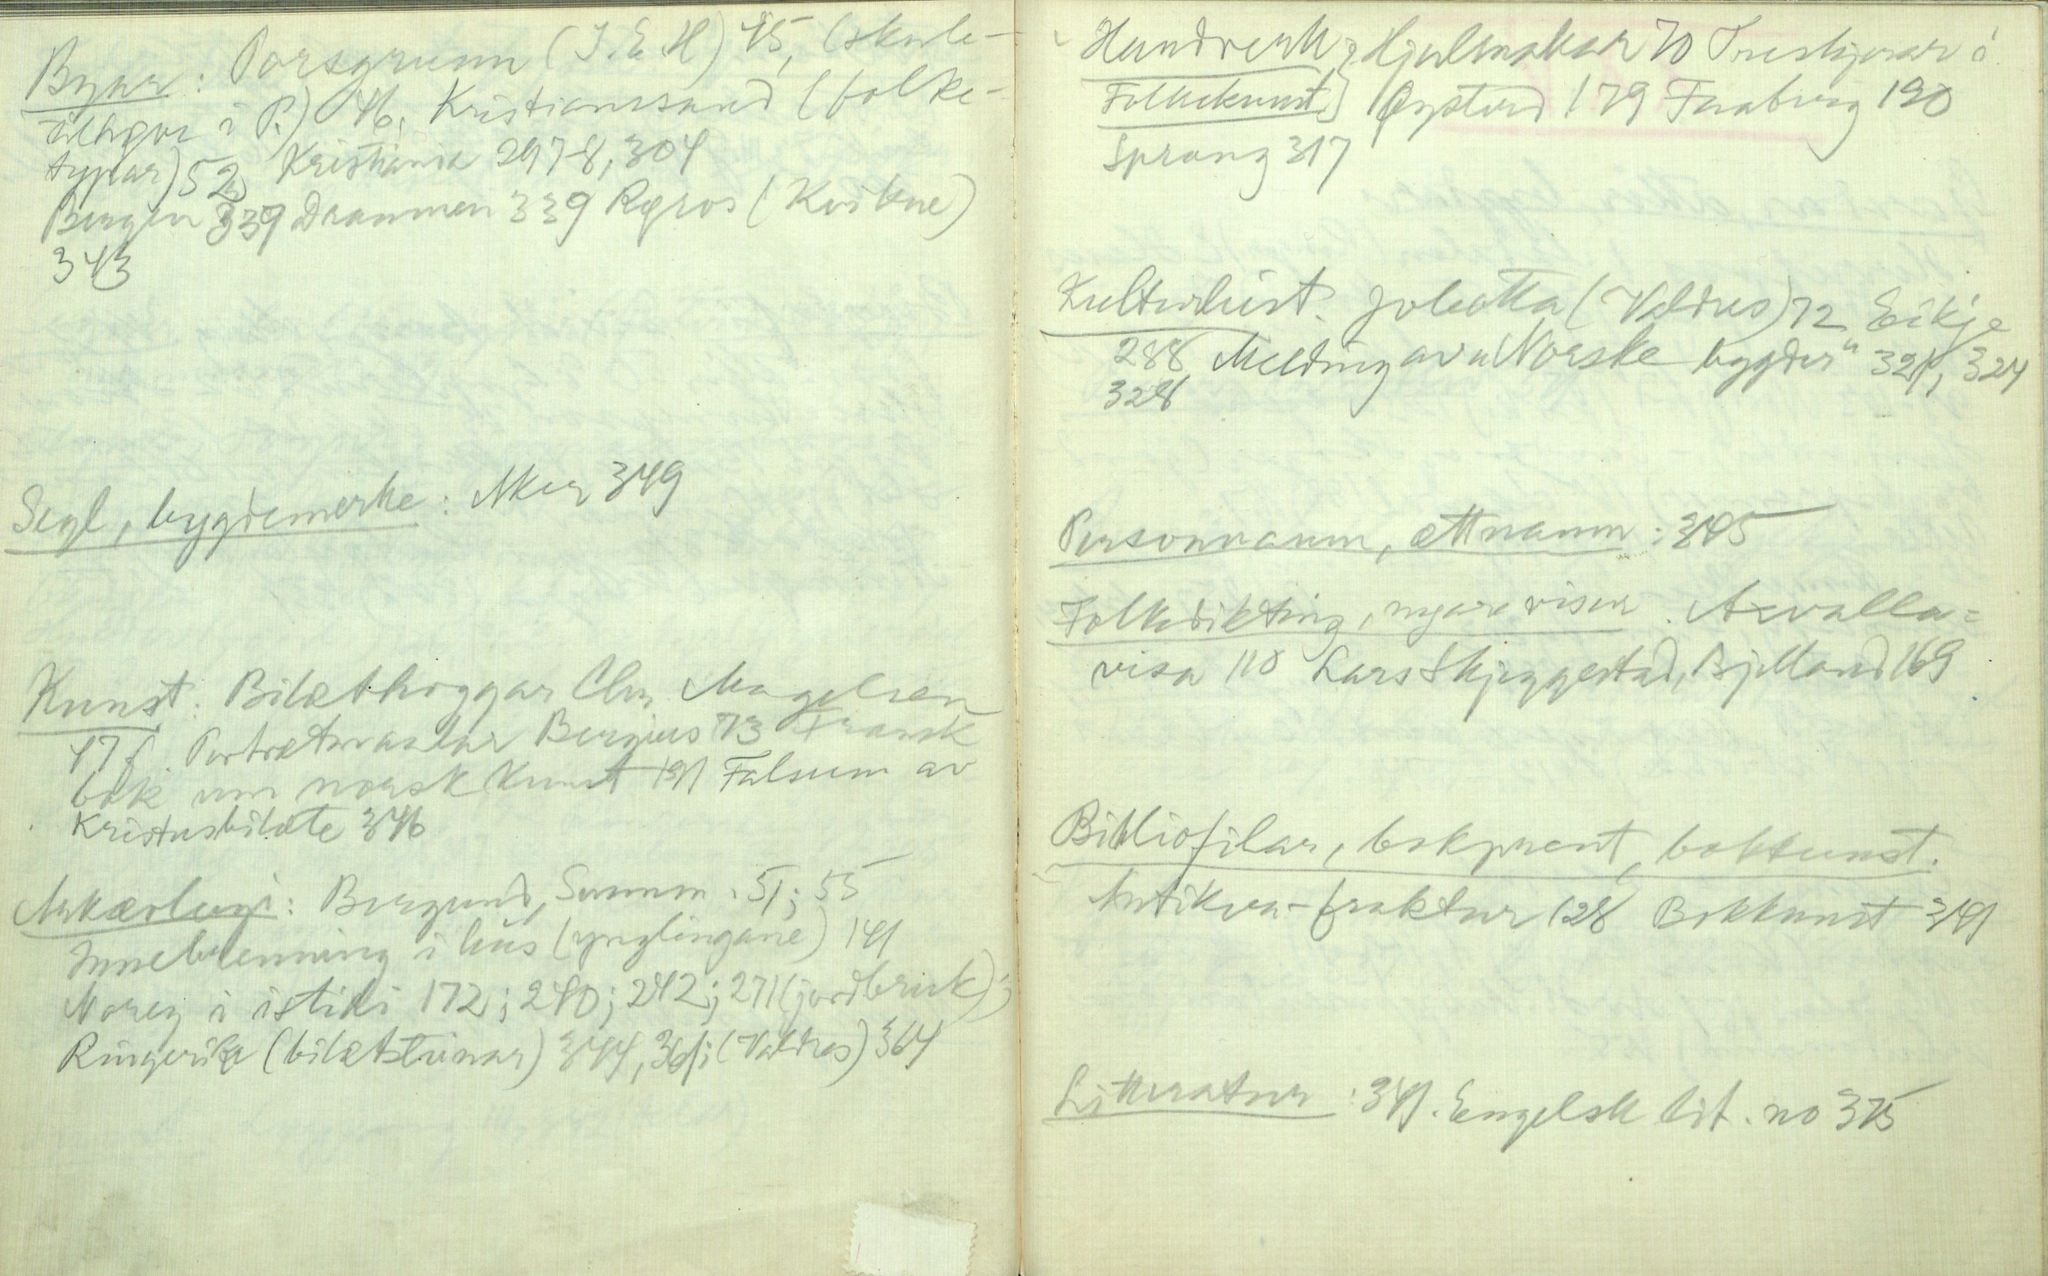 Byar: Porsgrunn (J. E. H) 45, (skule-
i P.) 46. Kristianssand (folke-
typar) 52, Kristiania 297-8, 304
Bergen 339 Drammen 339 Røros (Kvikne)
343
Segl, bygdemerke: Aker 349
Kunst: Bilæthoggar Chr. Magelsen
47 f. Portrætmaalar Bergius 73 Fransk
bok um norsk kunst 191 Falsum av
Kristusbilæte 346
Arkæologi: Borgund, Sunnm. 51; 55
Innebrenning i hus (ynglingane) 141
Noreg i istidi 172; 240; 242; 271 (jordbruk);
Ringerike (bilætsteinar) 344, 361; (Valdres) 364
Handverk, Hjulmakar 70 Treskjerar i
Folkekunst Øystord 179 Faaberg 190
Sprang 317
Kulturhist. Joleotta (Valdres) 72 Eikje
288 Melding av "Norske bygder" 321, 324
328
Personnamn, ættnamn: 345
Folkedikting, nyare visor. Axvalla-
visa 110 Lars Skjeggestad, Bjelland 169
Bibliofilar, bokprent, bokkunst.
Antikva-fraktur 128 Bokkunst 341
Litteratur: 341. Engelsk lit. no 375